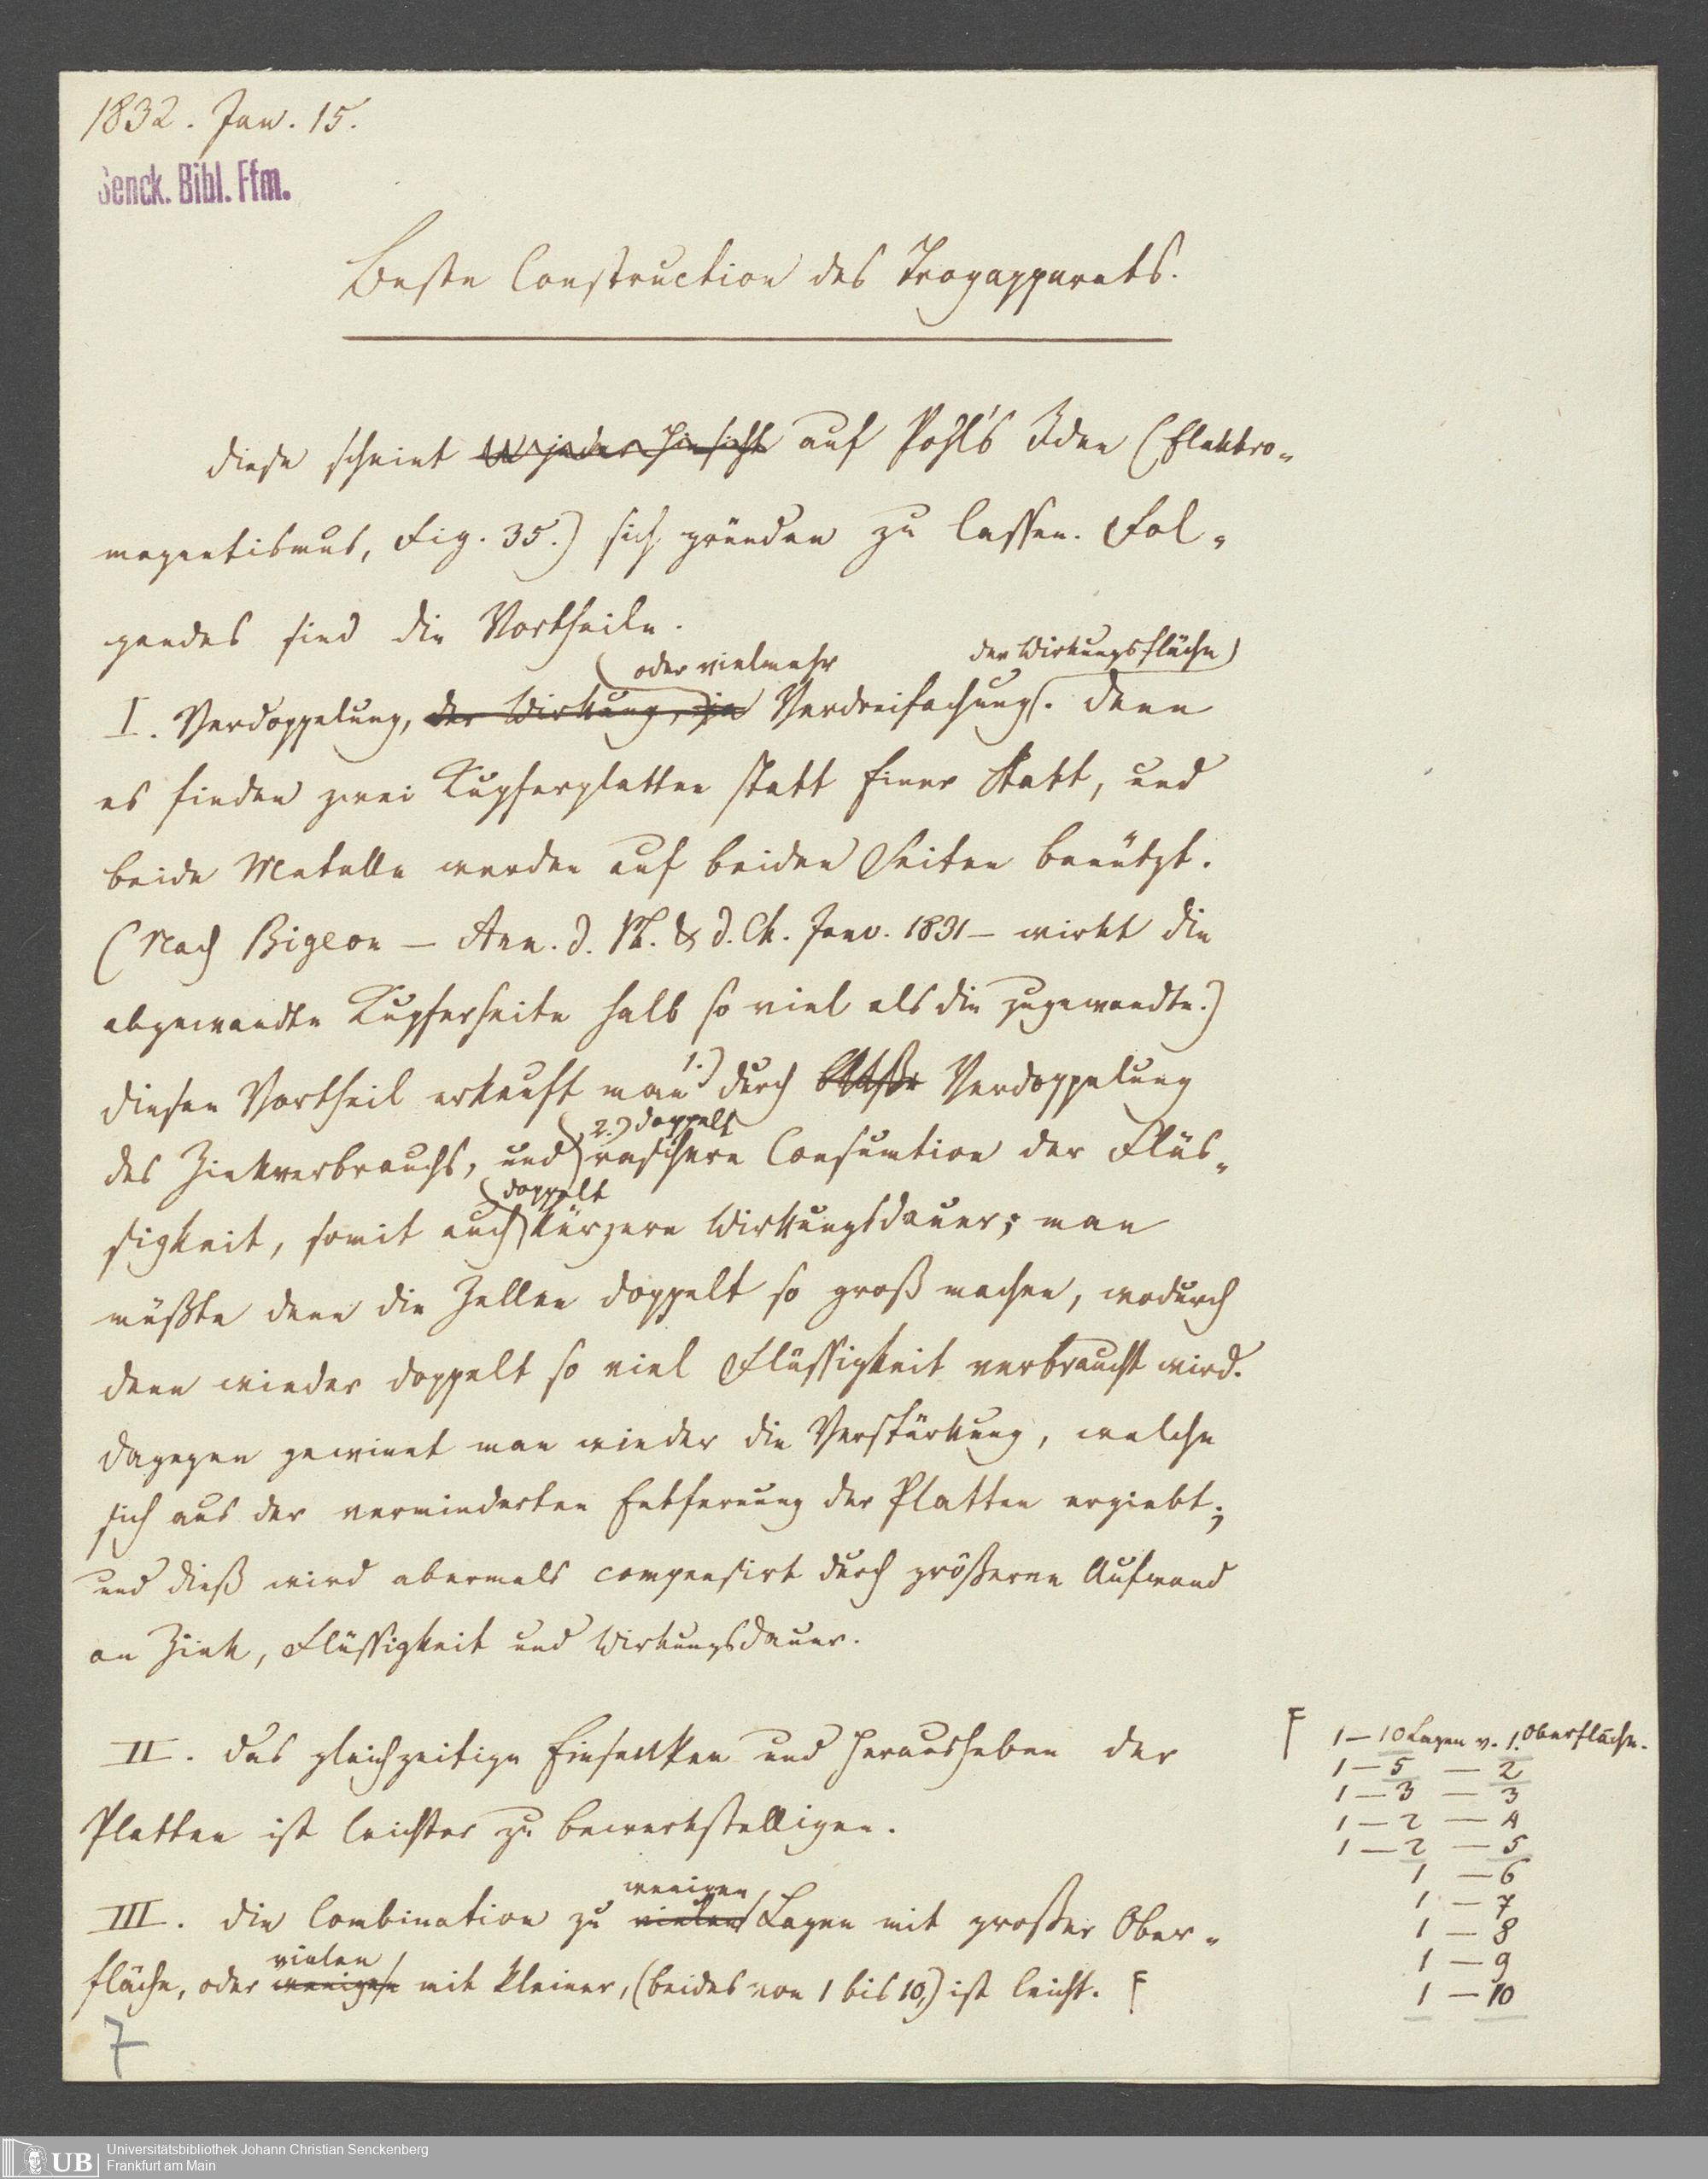 1832. Jan. 15.
Senck. Bibl. Ffm.
Beste Construction des Trogapparats.
Diese scheint in jeder Hinsicht auf Pohl's Idee (Elektro-
magnetismus, Fig. 35.) sich gründen zu lassen. Fol-
gendes sind die Vortheile.
oder vielmehr der Wirkungsfläche)
I. Verdoppelung, der Wirkung, ja Verdreifachung. Denn
es finden zwei Kupferplatten statt Einer Statt, und
beide Metalle werden auf beiden Seiten benützt.
(Nach Bigeon — Ann. d. Ph. & d. Ch. Janv. 1831 — wirkt die
abgewandte Kupferseite halb so viel als die zugewandte.)
Diesen Vortheil erkauft man 1.) durch Verdoppelung
2.) doppelt
des Zinkverbrauchs, und raschere Consumtion der Flüs-
doppelt
sigkeit, somit auch kürzere Wirkungsdauer; man
müßte denn die Zellen doppelt so groß machen, wodurch
denn wieder doppelt so viel Flüssigkeit verbraucht wird.
Dagegen gewinnt man wieder die Verstärkung, welche
sich aus der verminderten Entfernung der Platten ergiebt;
und dieß wird abermals compensirt durch größeren Aufwand
an Zink, Flüssigkeit und Wirkungsdauer.
II. Das gleichzeitige Einsenken und Herausheben der
Platten ist leichter zu bewerkstelligen.
wenigen
III. Die Combination zu vielen Lagen mit großer Ober-
vielen
fläche, oder wenigen mit kleiner, (beides von 1 bis 10,) ist leicht. F
F 1 — 10 Lagen v. 1 Oberfläche.
1 — 5 — 2
1 — 3 — 3
1 — 2 — 4
1 — 2 — 5
1 — 6
1 — 7
1 — 8
1 — 9
1 — 10
7
UB
Universitätsbibliothek Johann Christian Senckenberg
Frankfurt am Main